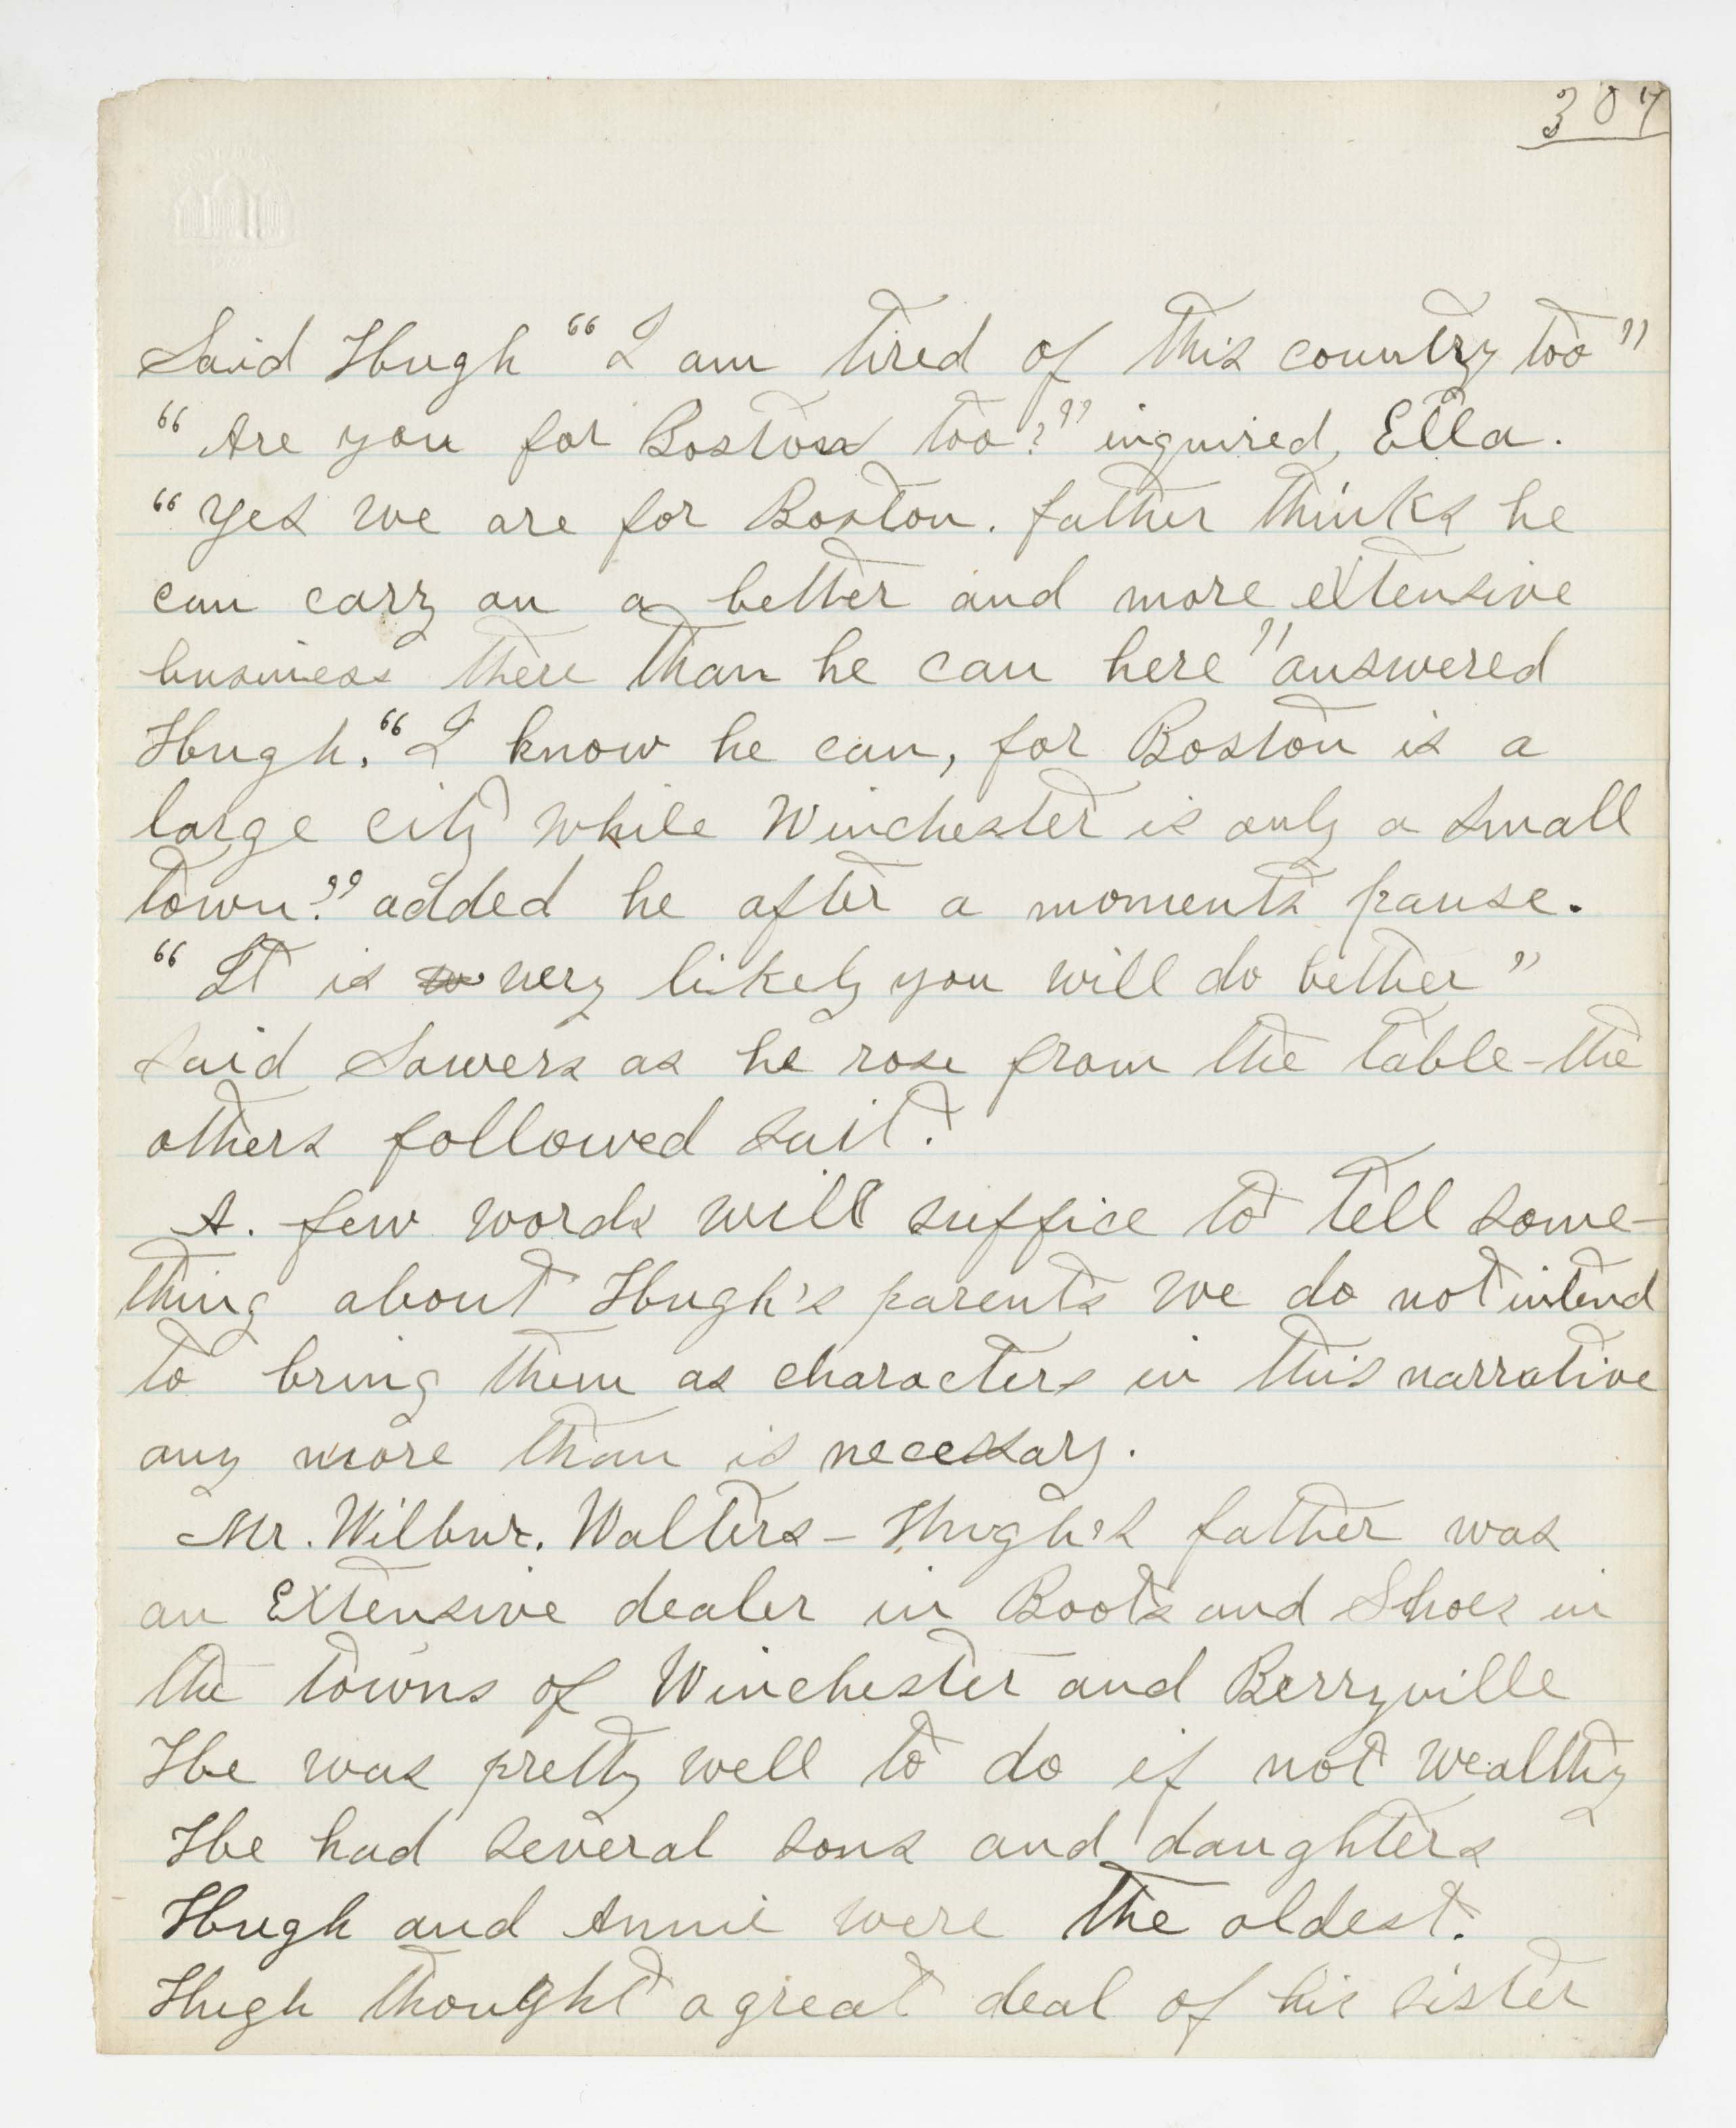 307
Said Hugh "I am tired of this country too"
"Are you for Boston too?" inquired Ella.
"Yes we are for Boston. father thinks he
can carry on a better and more extensive
business there than he can here" answered
Hugh. "I know he can, for Boston is a
large city while Winchester is only a small
town." added he after a moments pause.
"It is so very likely you will do better"
said Sowers as he rose from the table - the
others followed suit.
A. few words will suffice to tell some-
thing about Hugh's parents we do not intend
to bring them as characters in this narrative
any more than is necessary.
Mr. Wilbur. Walters - Hugh's father was
an Extensive dealer in Boots and Shoes in
the towns of Winchester and Berryville
He was pretty well to do if not wealthy
He had several sons and daughters
Hugh and Annie were the oldest.
Hugh thought a great deal of his sister